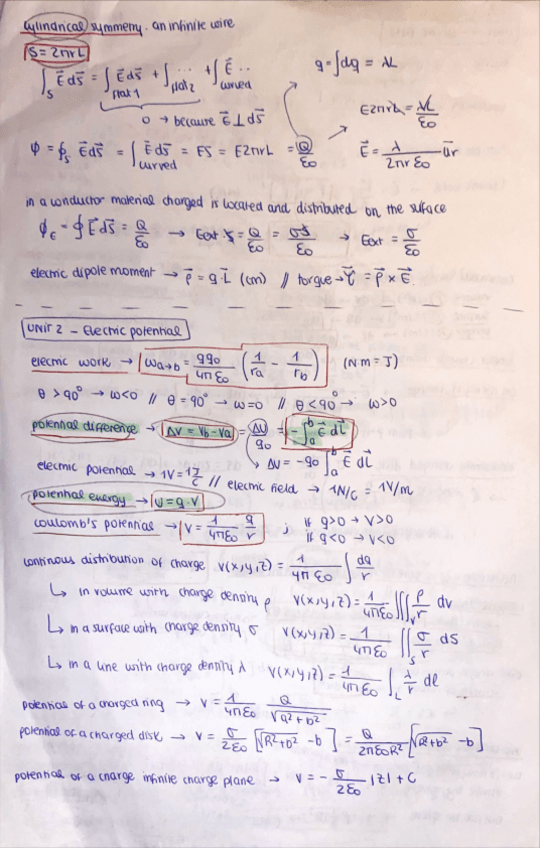 cylindrical symmetry. an infinite wire
S = 2πrL
∫_S E⃗ds⃗ = ∫_flat1 E⃗ds⃗ + ∫_flat2 ... + ∫_curved E⃗ ...
q = ∫dq = λL
0 → because E⃗ ⊥ ds⃗
E2πrL = λL/ε0
Φ = ∮_S E⃗ds⃗ = ∫_curved E⃗ds⃗ = ES = E2πrL = Q/ε0
E⃗ = λ/(2πr ε0) u⃗r
in a conductor material charged is located and distributed on the surface
ϕ_E = ∮E⃗ds⃗ = Q/ε0 → Eext S = Q/ε0 = σS/ε0 → Eext = σ/ε0
electric dipole moment → p⃗ = q·L⃗ (cm) // torque → τ⃗ = p⃗ × E⃗
UNIT 2 - Electric potential
electric work → Wa→b = qq0/(4πε0) (1/ra - 1/rb) (N·m = J)
θ > 90° → w<0 // θ = 90° → w=0 // θ < 90° → w>0
potential difference → ΔV = Vb - Va = ΔU/q0 = -∫_a^b E⃗ dL⃗
↳ ΔU = -q0 ∫_a^b E⃗ dL⃗
electric potential → 1V = 1J/C // electric field → 1N/C = 1V/m
potential energy → U = q·V
coulomb's potential → V = 1/(4πε0) q/r ; if q>0 → V>0
if q<0 → V<0
continous distribution of charge V(x,y,z) = 1/(4πε0) ∫ dq/r
↳ in volume with charge density ρ V(x,y,z) = 1/(4πε0) ∭_V ρ/r dv
↳ in a surface with charge density σ V(x,y,z) = 1/(4πε0) ∬_S σ/r dS
↳ in a line with charge density λ V(x,y,z) = 1/(4πε0) ∫_L λ/r dl
potential of a charged ring → V = 1/(4πε0) Q/√(a²+b²)
potential of a charged disk → V = σ/(2ε0) [√(R²+b²) - b] = Q/(2πε0R²) [√(R²+b²) - b]
potential of a charge infinite charge plane → V = - σ/(2ε0) |z| + C